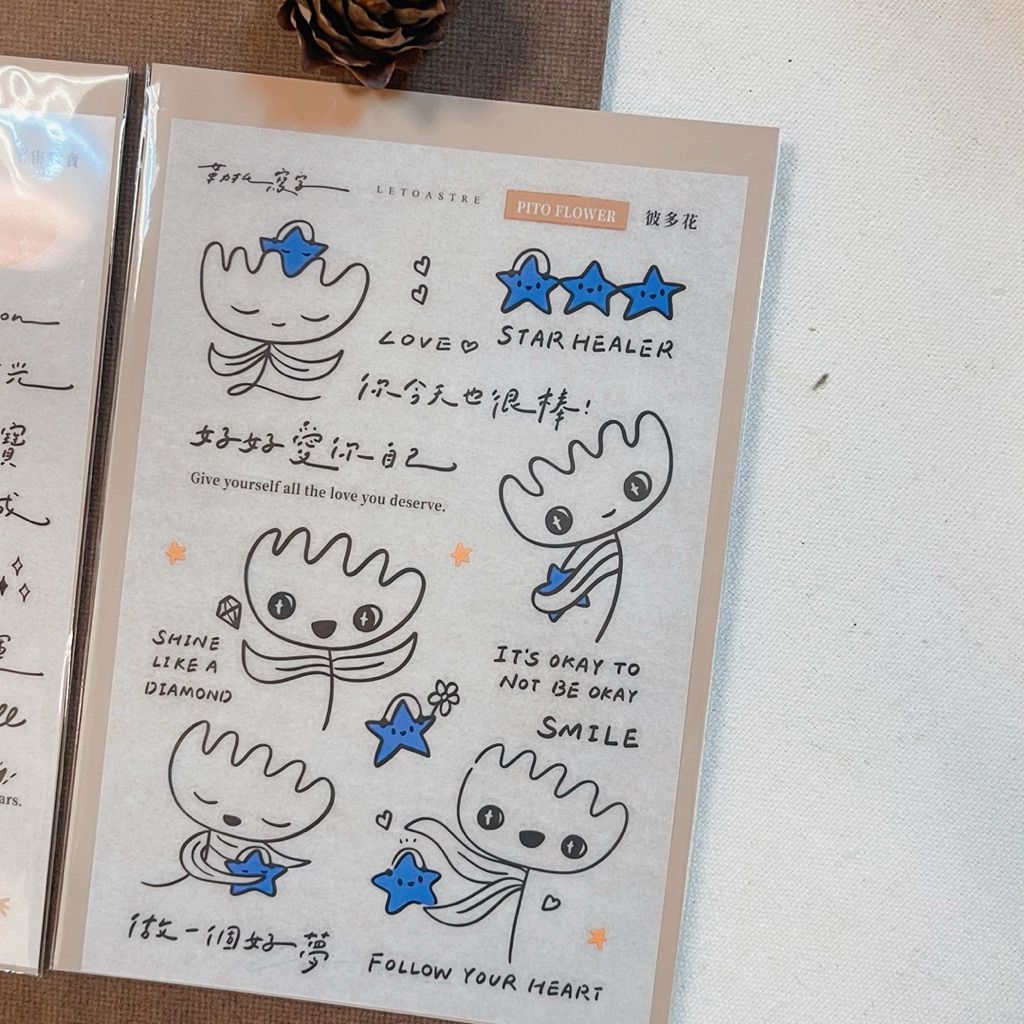 LETOASTRE
PITO FLOWER
彼多花
LOVE
STAR HEALER
你今天也很棒!
好好愛你自己
Give yourself all the love you deserve.
SHINE
LIKE A
DIAMOND
IT'S OKAY TO
NOT BE OKAY
SMILE
做一個好夢
FOLLOW YOUR HEART
on
光
寶
成
ars.